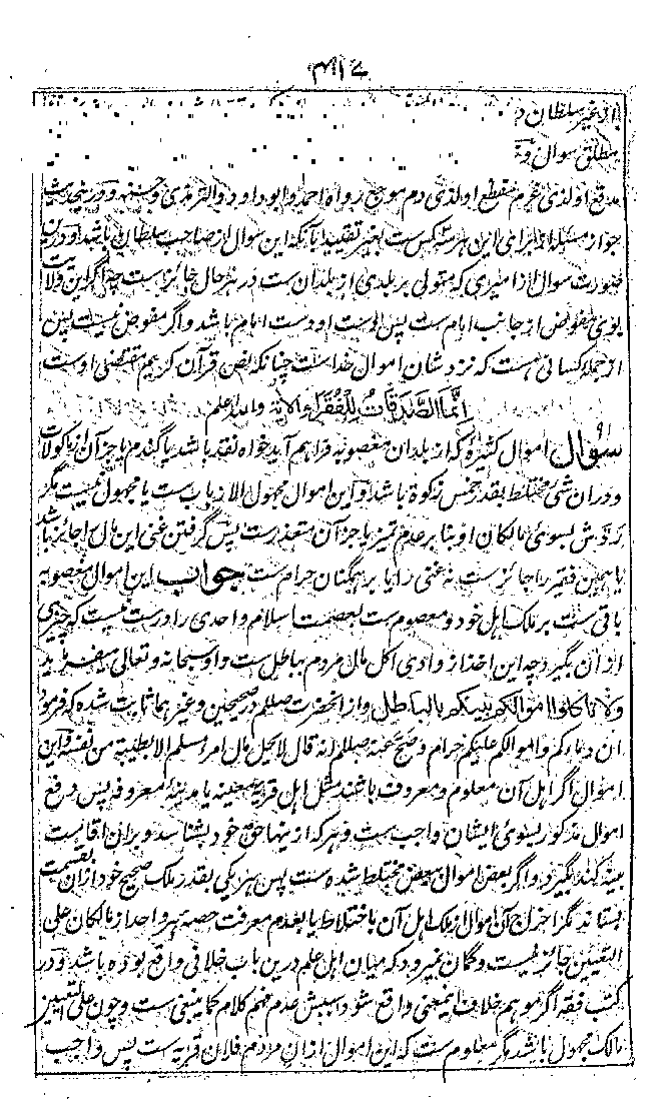 ۴۱۷
یا از غیر سلطان د
مطلق سوال و
مدقع اولذی غرم مفظع اولذی دم موجع رواه احمد وابو داود والترمذی وحسنه و درین حدیث
جواز مسئله از برای این هر سه کس ست بغیر تقیید بآنکه این سوال از صاحب سلطان باشد و درین
صورت سوال از امیری که متولی بر بلدی از بلدان ست در هر حال جائز ست چه اگر این ولایت
بوی مفوض از جانب امام ست پس دست او دست امام باشد و اگر مفوض نیست پس
از جمله کسانی هست که نزد شان اموال خداست چنانکه نص قرآن کریم مقتضی اوست
اِنَّمَا الصَّدَقَاتُ لِلْفُقَرَاءِ الآیة والله اعلم
سؤال اموال کثیره که از بلدان مغصوبه فراهم آید خواه نقد باشد یا گندم یا جز آن از ماکولات
و دران شئ مختلط بقدر خمس زکوة باشد و این اموال مجهول الارباب ست یا مجهول نیست مگر
ردش بسوی مالکان او بنا بر عدم تمیز یا جز آن متعذر ست پس گرفتن غنی این مال را جائز باشد
یا همین فقیر را جائز ست نه غنی را یا بر همگنان حرام ست جواب این اموال مغصوبه
باقی ست بر ملک اهل خود و معصوم ست بعصمت اسلام واحدی را درست نیست که چیزی
از آن بگیرد چه این اخذ از وادی اکل مال مردم بباطل ست و او سبحانه و تعالی میفرماید
ولا تاکلوا اموالکم بینکم بالباطل و از آنحضرت صللم در صحیحین و غیرهما ثابت شده که فرمود
ان دماءکم واموالکم علیکم حرام وصح عنه صللم انه قال لا یحل مال امرء مسلم الا بطیبة من نفسه و این
اموال اگر اهل آن معلوم و معروف باشند مثل اهل قریهٔ معینه یا مدینهٔ معروفه پس دفع
اموال مذکور بسوی ایشان واجب ست و هر که از ینها حق خود بشناسد و بران اقامت
بینه کند بگیرد و اگر بعض اموال ببعض مختلط شده ست پس هر یکی بقدر ملک صحیح خود ازان بقسمت
بستاند مگر اخراج آن اموال از ملک اهل آن باختلاط یا بعدم معرفت حصه هر واحد از مالکان علی
التعیین جائز نیست و گمان نمیرود که میان اهل علم درین باب خلافی واقع بوده باشد و در
کتب فقه اگر موهم خلاف این معنی واقع شود سببش عدم فهم کلام کما ینبغی ست و چون علی التعیین
مالک مجهول باشد مگر معلوم ست که این اموال از ان مردم فلان قریه ست پس واجب